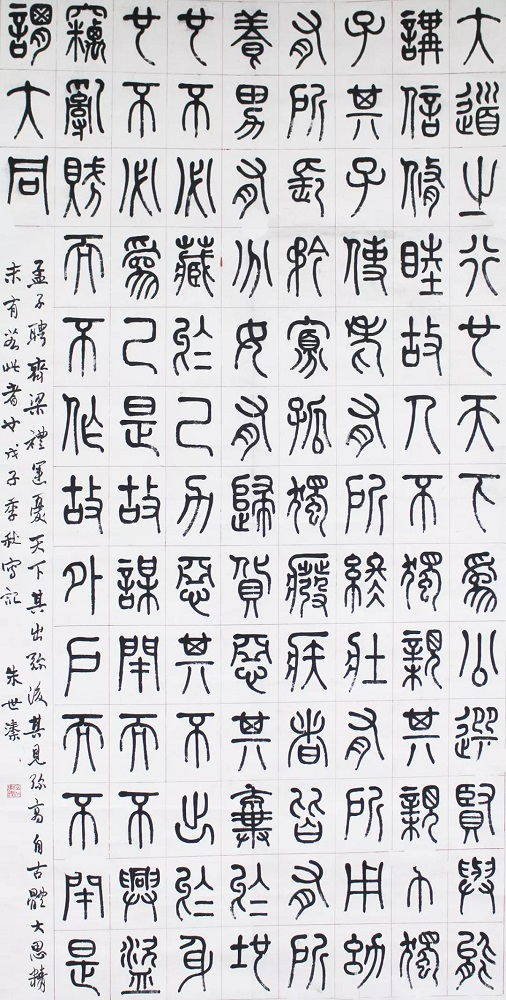 大道之行也天下爲公選賢與能
講信脩睦故人不獨親其親不獨
子其子使老有所終壯有所用幼
有所長矜寡孤獨廢疾者皆有所
養男有分女有歸貨惡其棄於地
也不必藏於己力惡其不出於身
也不必爲己是故謀閉而不興盜
竊亂賊而不作故外戶而不閉是
謂大同
孟子聘齊梁禮運憂天下其出弥後其見弥高自古體大思精
未有若此者也戊子季秋寫記
朱世